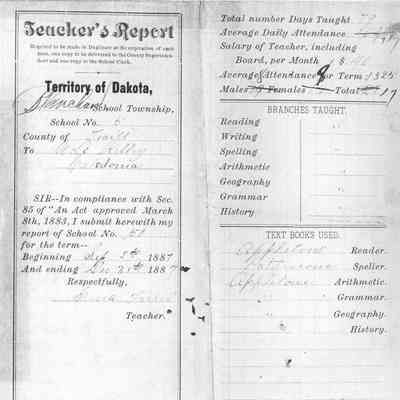 Teacher's Report
Required to be made in Duplicate at the expiration of each
term, one copy to be delivered to the County Superinten-
dent and one copy to the School Clerk.
Territory of Dakota,
School Township,
School No. 5
County of Traill
To
SIR--In compliance with Sec.
85 of "An Act approved March
8th, 1883, I submit herewith my
report of School No. 51
for the term--
Beginning Sep 5th 1887
And ending Dec 21st 1887
Respectfully,
Teacher.
Total number Days Taught
Average Daily Attendance
Salary of Teacher, including
Board, per Month
Average Attendance for Term
Males Females Total 17
BRANCHES TAUGHT.
Reading
Writing
Spelling
Arithmetic
Geography
Grammar
History
TEXT BOOKS USED.
Appletons Reader.
Speller.
Appletons Arithmetic.
" Grammar.
" Geography.
" History.